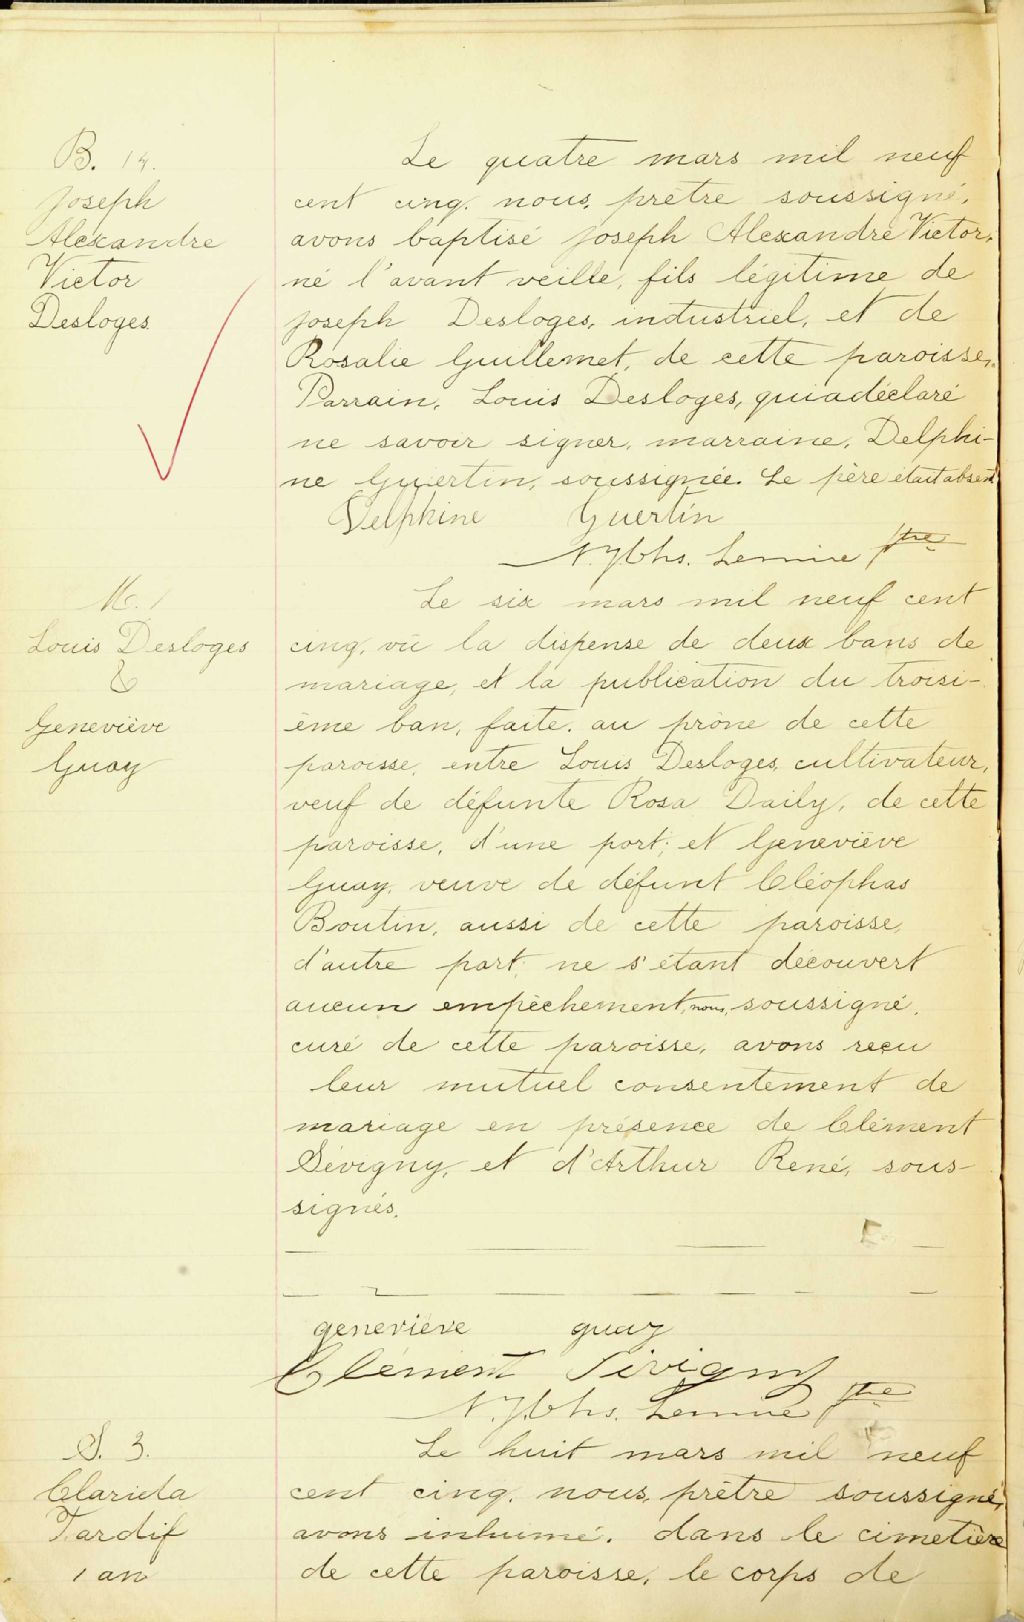 B. 14.
Joseph
Alexandre
Victor
Desloges
Le quatre mars mil neuf
cent cinq, nous, prêtre soussigné,
avons baptisé Joseph Alexandre Victor,
né l'avant veille, fils légitime de
Joseph Desloges, industriel, et de
Rosalie Guillemet, de cette paroisse,
Parrain, Louis Desloges, qui a déclaré
ne savoir signer, marraine, Delphi-
ne Guertin, soussignée. Le père était absent
Delphine Guertin
N. J. Chs. Lemire Ptre
M. 1
Louis Desloges
&
Geneviève
Guay
Le six mars mil neuf cent
cinq, vû la dispense de deux bans de
mariage, et la publication du troisi-
ème ban, faite, au prône de cette
paroisse, entre Louis Desloges, cultivateur,
veuf de défunte Rosa Daily, de cette
paroisse, d'une part; et Geneviève
Guay, veuve de défunt Cléophas
Boutin, aussi de cette paroisse,
d'autre part; ne s'étant découvert
aucun empêchement, nous, soussigné,
curé de cette paroisse, avons reçu
leur mutuel consentement de
mariage en présence de Clément
Sévigny, et d'Arthur René, sous-
signés.
geneviève guay
Clément Sivigny
N. J. Chs. Lemire Ptre
S. 3.
Clarida
Tardif
1 an
Le huit mars mil neuf
cent cinq, nous, prêtre soussigné,
avons inhumé, dans le cimetière
de cette paroisse, le corps de